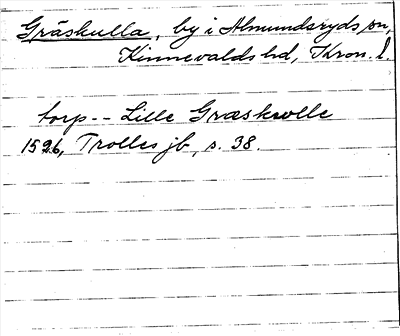 Gräskulla, by i Almundsryds sn,
Kinnevalds hd, Kron. l.
torp -- Lille Græskwlle
1526, Trolles jb, s. 38.